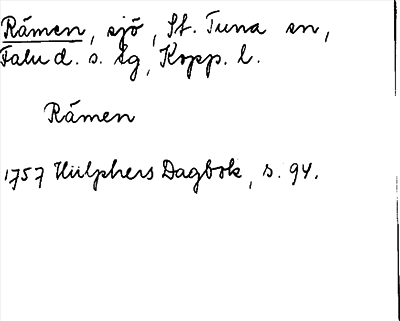 Råmen, sjö, St. Tuna sn,
Falu d. s. lg, Kopp. l.
Råmen
1757 Hülphers Dagbok, s. 94.